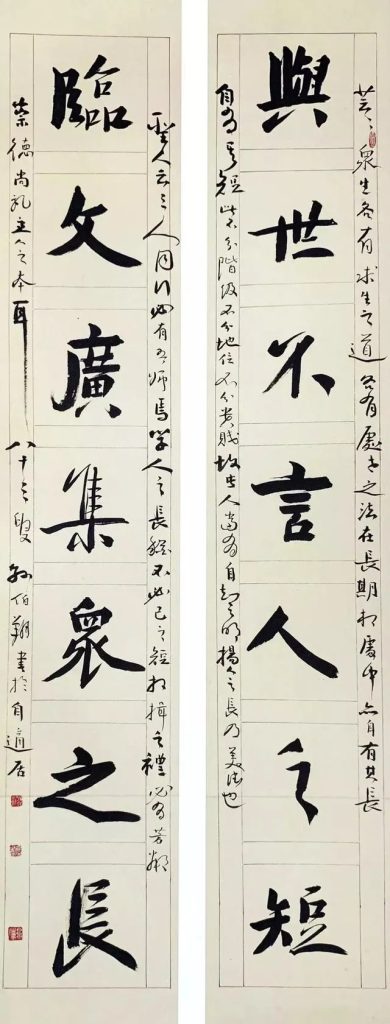 芸芸衆生各有求生之道各有處世之法在長期相處中亦自有其長
與世不言人之短
自有其短此不分階級不分地位不分貴賤故吾人當有自知之明揚人之長乃美法也
聖人云三人同行必有吾師焉學人之長能不必己之短相揖之禮必有芳鄰
臨文廣集衆之長
崇德尚礼立人之本耳 八十三叟 孫伯翔書於自適居